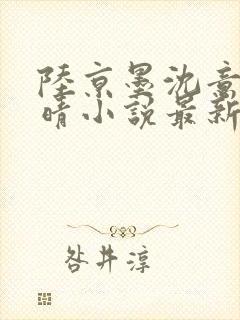 陸京墨沈意
晴小說最新
咎井淳